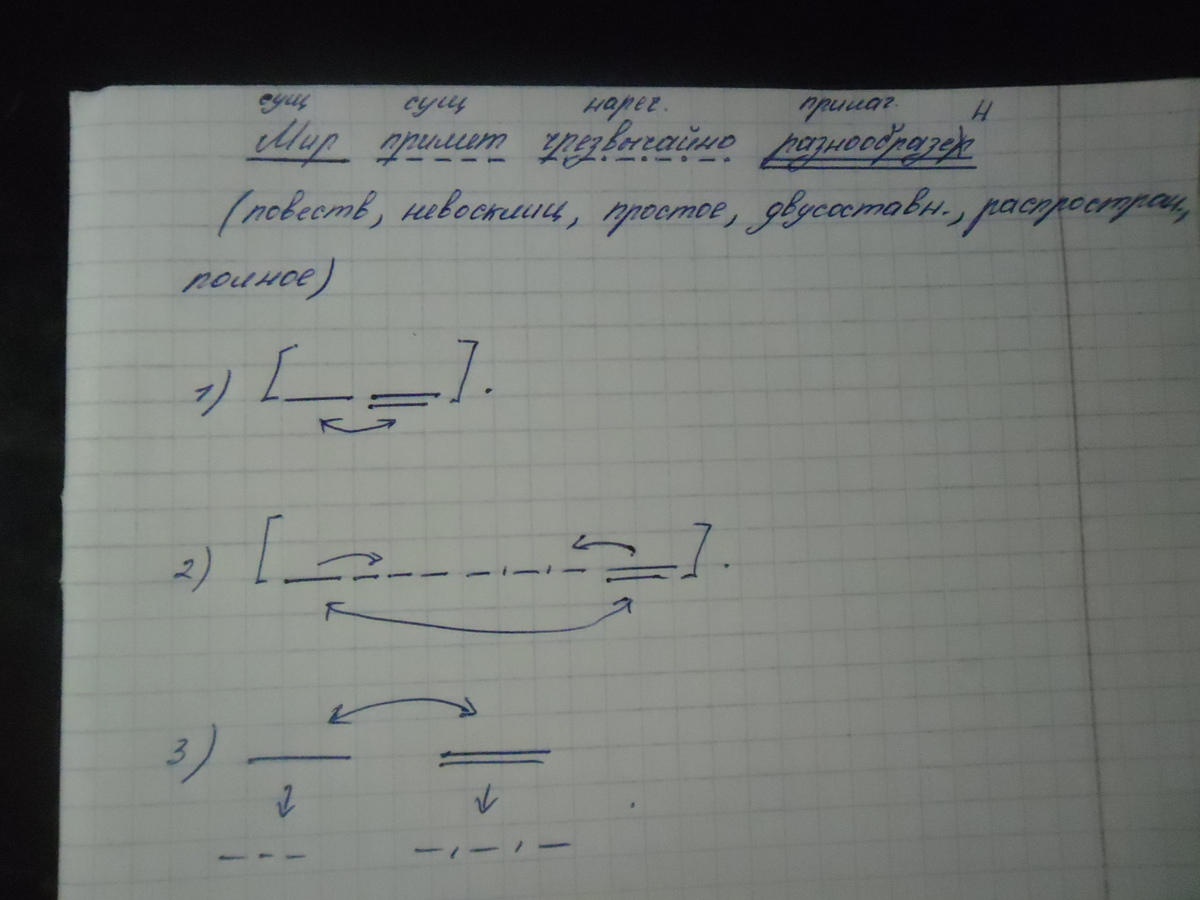 сущ сущ нареч. прилаг.
Мир примет чрезвычайно разнообразен
(повеств, невосклиц, простое, двусоставн., распростран,
полное)
1) [ ].
2) [ ].
3)